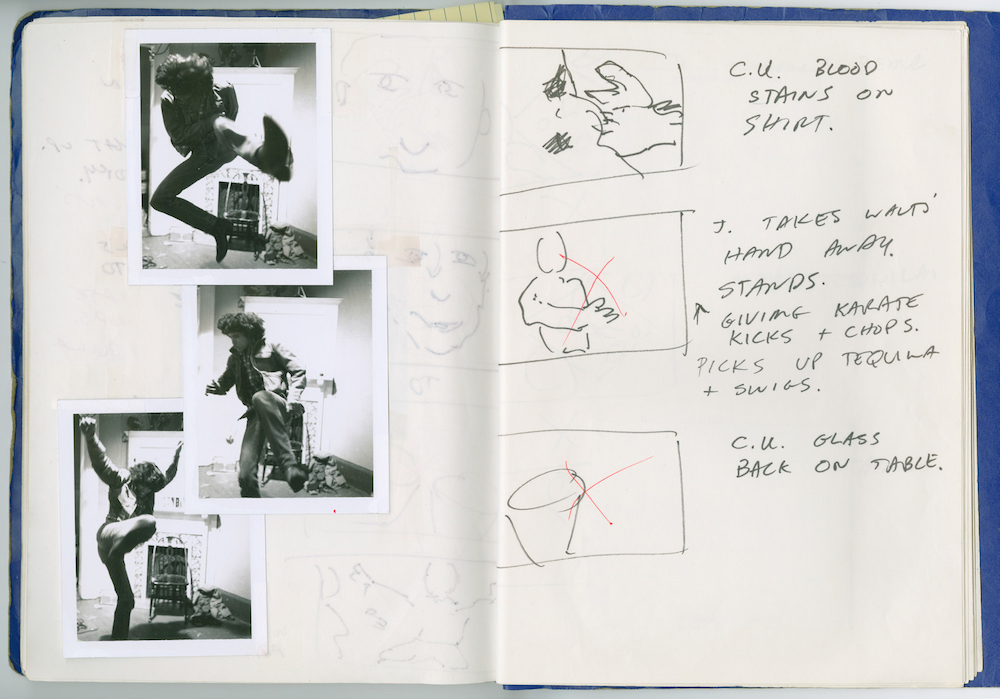 C.U. BLOOD
STAINS ON
SHIRT.
J. TAKES WALTS'
HAND AWAY.
STANDS.
↑ GIVING KARATE
KICKS + CHOPS.
PICKS UP TEQUILA
+ SWIGS.
C.U. GLASS
BACK ON TABLE.